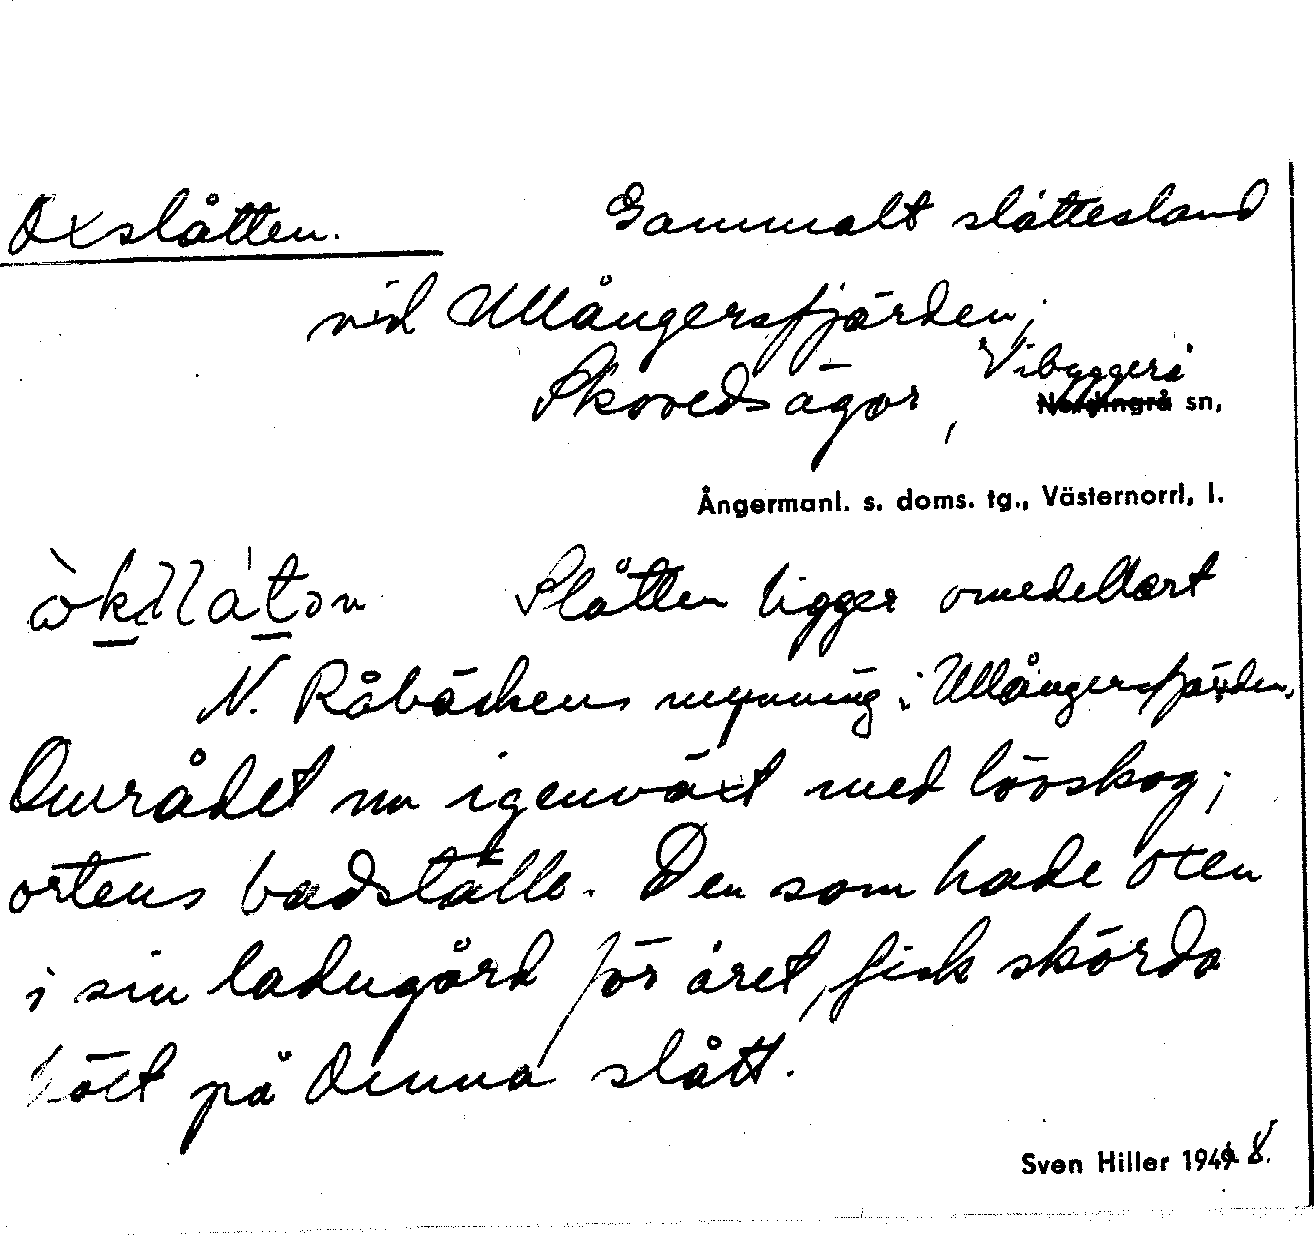 Oxslåtten. Gammalt slåttesland
vid Ullångersfjärden;
Skovedsägor, Vibyggerå
Nordingrå sn,
Ångermanl. s. doms. tg., Västernorrl, l.
Slåtten ligger omedelbart
N. Råbäckens mynning i Ullångersfjärden.
Området nu igenväxt med lövskog;
ortens badställe. Den som hade oxen
i sin ladugård för året, fick skörda
höet på denna slått.
Sven Hiller 1948.